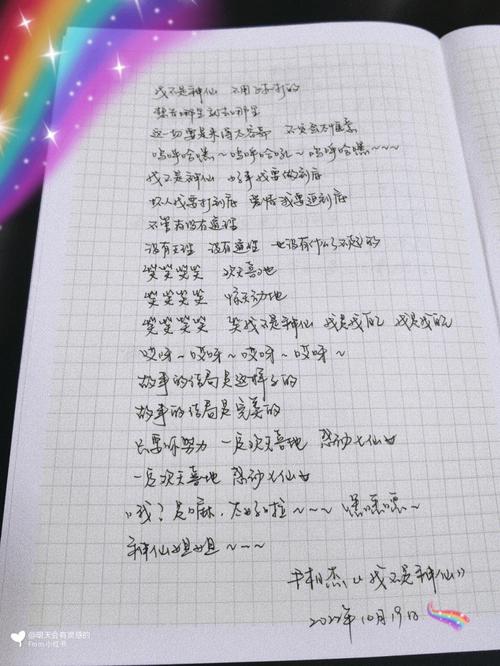 我不是神仙 不用
想去哪里就去哪里
这一切要是来得太容易 不哭就不惬意
呜呼哈嘿~呜呼哈吼~呜呼哈嘿~~~
我不是神仙 好事我要做到底
坏人我要打到底 爱情我要追到底
不管有没有道理
没有天理 没有道理 也没有什么了不起的
哭哭哭哭 欢天喜地
哭哭哭哭 惊天动地
哭哭哭哭 我不是神仙 我是我自己 我是我自己
哎呀~哎呀~哎呀~哎呀~
故事的结局是这样子的
故事的结局是完美的
只要你努力 一定欢天喜地 感动七仙女
一定欢天喜地 感动七仙女
哦？是嘛，太好啦~~~ 嘿嘿嘿~
神仙姐姐~~~
尹相杰《我不是神仙》
2022年10月19日
@明天会有灵感的
From 小红书